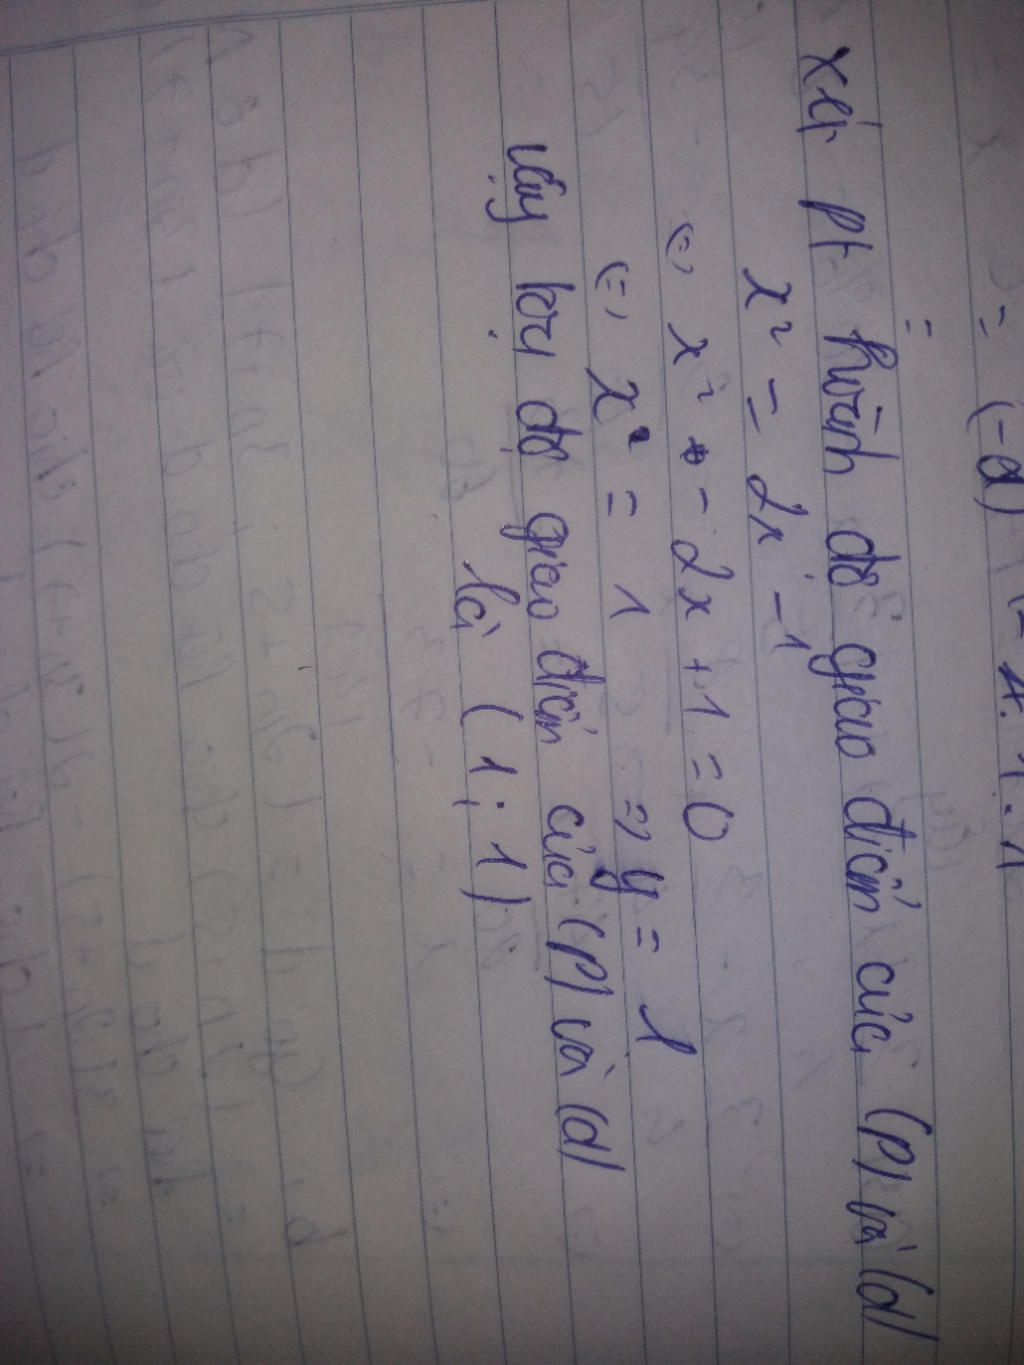 = (-2)
=
Xét pt hoành độ giao điểm của (P) và (d)
x² = 2x - 1
(=) x² - 2x + 1 = 0
(=) x = 1 => y = 1
Vậy toạ độ giao điểm của (P) và (d)
là (1; 1)